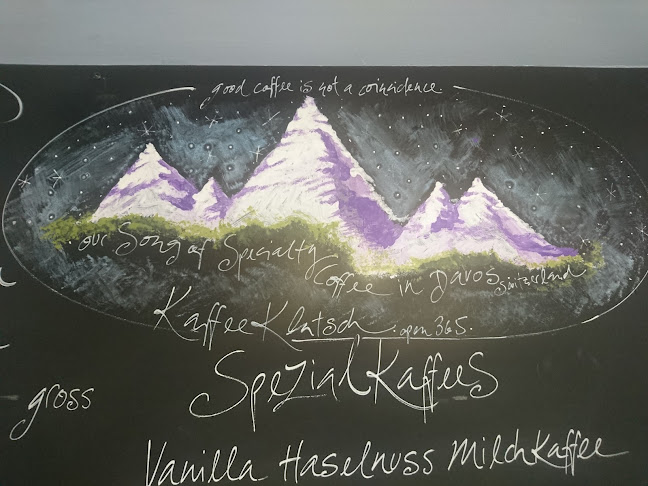 good coffee is not a coincidence
our Song of Specialty Coffee in Davos Switzerland
KaffeeKlatsch. open 365.
SpezialKaffees
gross
Vanilla Haselnuss MilchKaffee